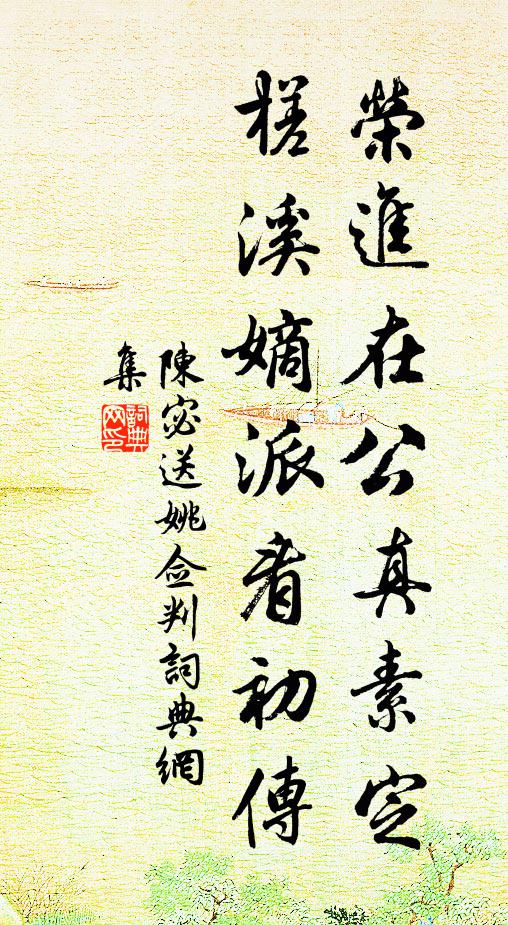 榮進在公真素定
槎溪嫡派看初傳
陳宓送姚僉判詞典網
集
詞典
网印